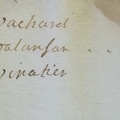 Vachard
Valansan . .
Vinatier